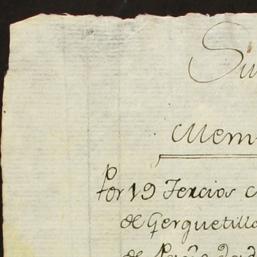 Su
Mem
Por 19 Tercios c
de Gerguetilla
de